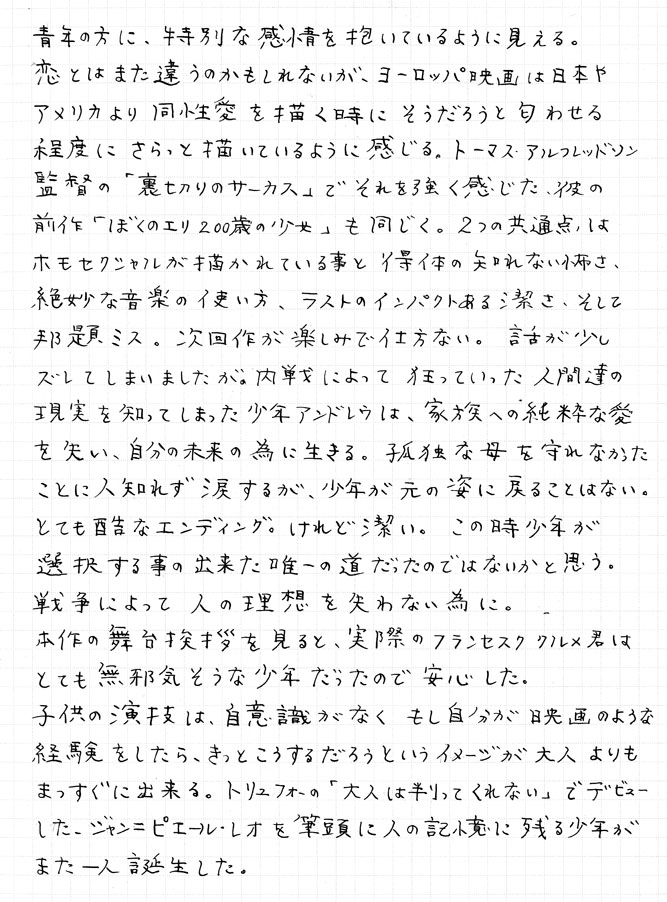 青年の方に、特別な感情を抱いているように見える。
恋とはまた違うのかもしれないが、ヨーロッパ映画は日本や
アメリカより同性愛を描く時にそうだろうと匂わせる
程度にさらっと描いているように感じる。トーマス・アルフレッドソン
監督の「裏切りのサーカス」でそれを強く感じた、彼の
前作「ぼくのエリ200歳の少女」も同じく。2つの共通点は
ホモセクシャルが描かれている事と得体の知れない怖さ、
絶妙な音楽の使い方、ラストのインパクトある潔さ、そして
邦題ミス。次回作が楽しみで仕方ない。 話が少し
ズレてしまいましたが。内戦によって狂っていった人間達の
現実を知ってしまった少年アンドレウは、家族への純粋な愛
を失い、自分の未来の為に生きる。孤独な母を守れなかった
ことに人知れず涙するが、少年が元の姿に戻ることはない。
とても酷なエンディング。けれど潔い。 この時少年が
選択する事の出来た唯一の道だったのではないかと思う。
戦争によって人の理想を失わない為に。
本作の舞台挨拶を見ると、実際のフランセスククルメ君は
とても無邪気そうな少年だったので安心した。
子供の演技は、自意識がなくもし自分が映画のような
経験をしたら、きっとこうするだろうというイメージが大人よりも
まっすぐに出来る。トリュフォーの「大人は判ってくれない」でデビュー
した、ジャン=ピエール・レオを筆頭に人の記憶に残る少年が
また一人誕生した。